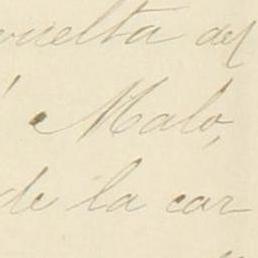 vuelta del
Malo,
de la car